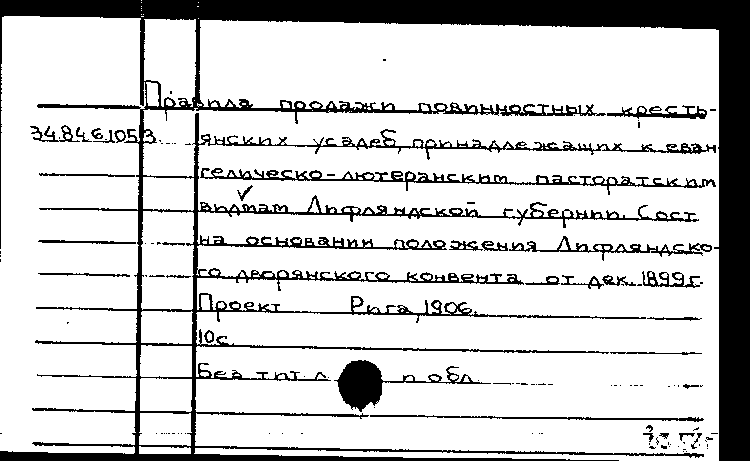 Правила продажи повинностных кресть-
34.84.6.1053 янских усадеб, принадлежащих к еван-
гелическо-лютеранским пасторатским
видмам Лифляндской губернии. Сост.
на основании положения Лифляндско-
го дворянского конвента от дек. 1899г.
Проект Рига, 1906.
10с.
Без тит. л. и обл.